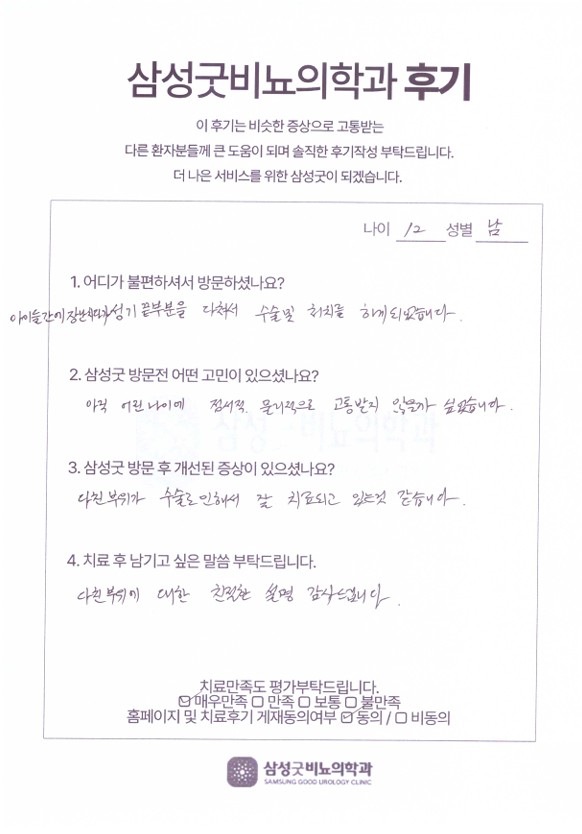 삼성굿비뇨의학과 후기
이 후기는 비슷한 증상으로 고통받는
다른 환자분들께 큰 도움이 되며 솔직한 후기작성 부탁드립니다.
더 나은 서비스를 위한 삼성굿이 되겠습니다.
나이 12 성별 남
1. 어디가 불편하셔서 방문하셨나요?
아이들간에 장난치다가 성기 끝부분을 다쳐서 수술및 처치를 하게되었습니다.
2. 삼성굿 방문전 어떤 고민이 있으셨나요?
아직 어린나이에 정서적, 물리적으로 고통받지 않을까 싶었습니다.
3. 삼성굿 방문 후 개선된 증상이 있으셨나요?
다친부위가 수술로인해서 잘 치료되고 있는것 같습니다.
4. 치료 후 남기고 싶은 말씀 부탁드립니다.
다친부위에 대한 친절한 설명 감사드립니다.
치료만족도 평가부탁드립니다.
☑ 매우만족 ☐ 만족 ☐ 보통 ☐ 불만족
홈페이지 및 치료후기 게재동의여부 ☑ 동의 / ☐ 비동의
삼성굿비뇨의학과
SAMSUNG GOOD UROLOGY CLINIC